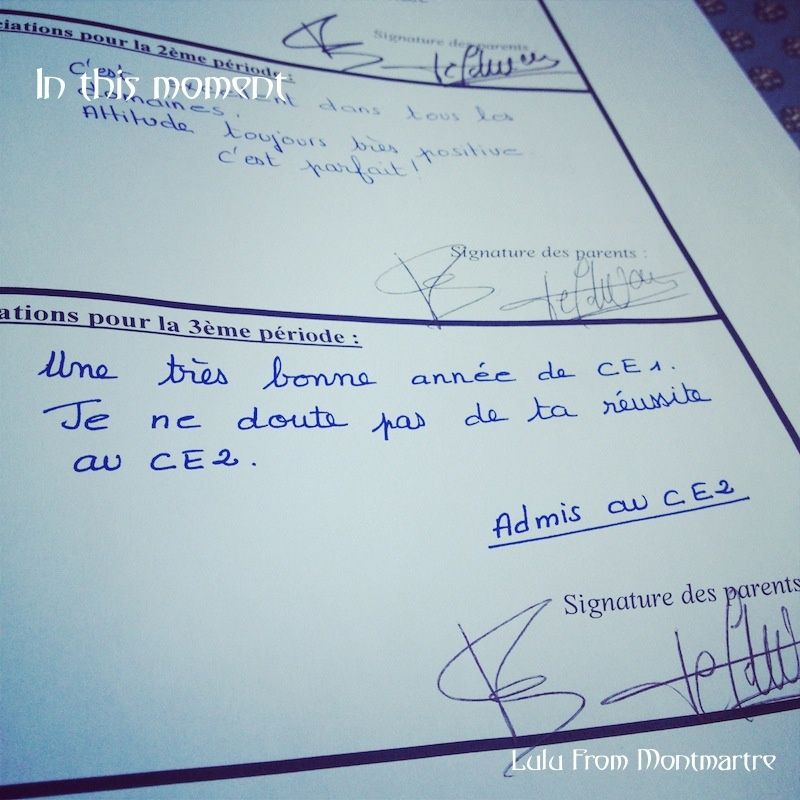 Signature des parents
ciations pour la 2ème période :
In this moment
C'est dans tous les
domaines.
Attitude toujours très positive
c'est parfait !
Signature des parents :
ations pour la 3ème période :
Une très bonne année de CE1.
Je ne doute pas de ta réussite
au CE2.
Admis au CE2
Signature des parents
Lulu From Montmartre